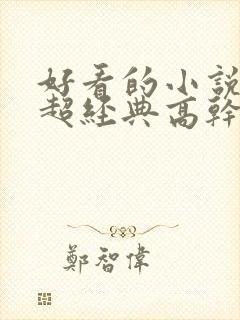 好看的小說
超經典高幹
鄭智偉